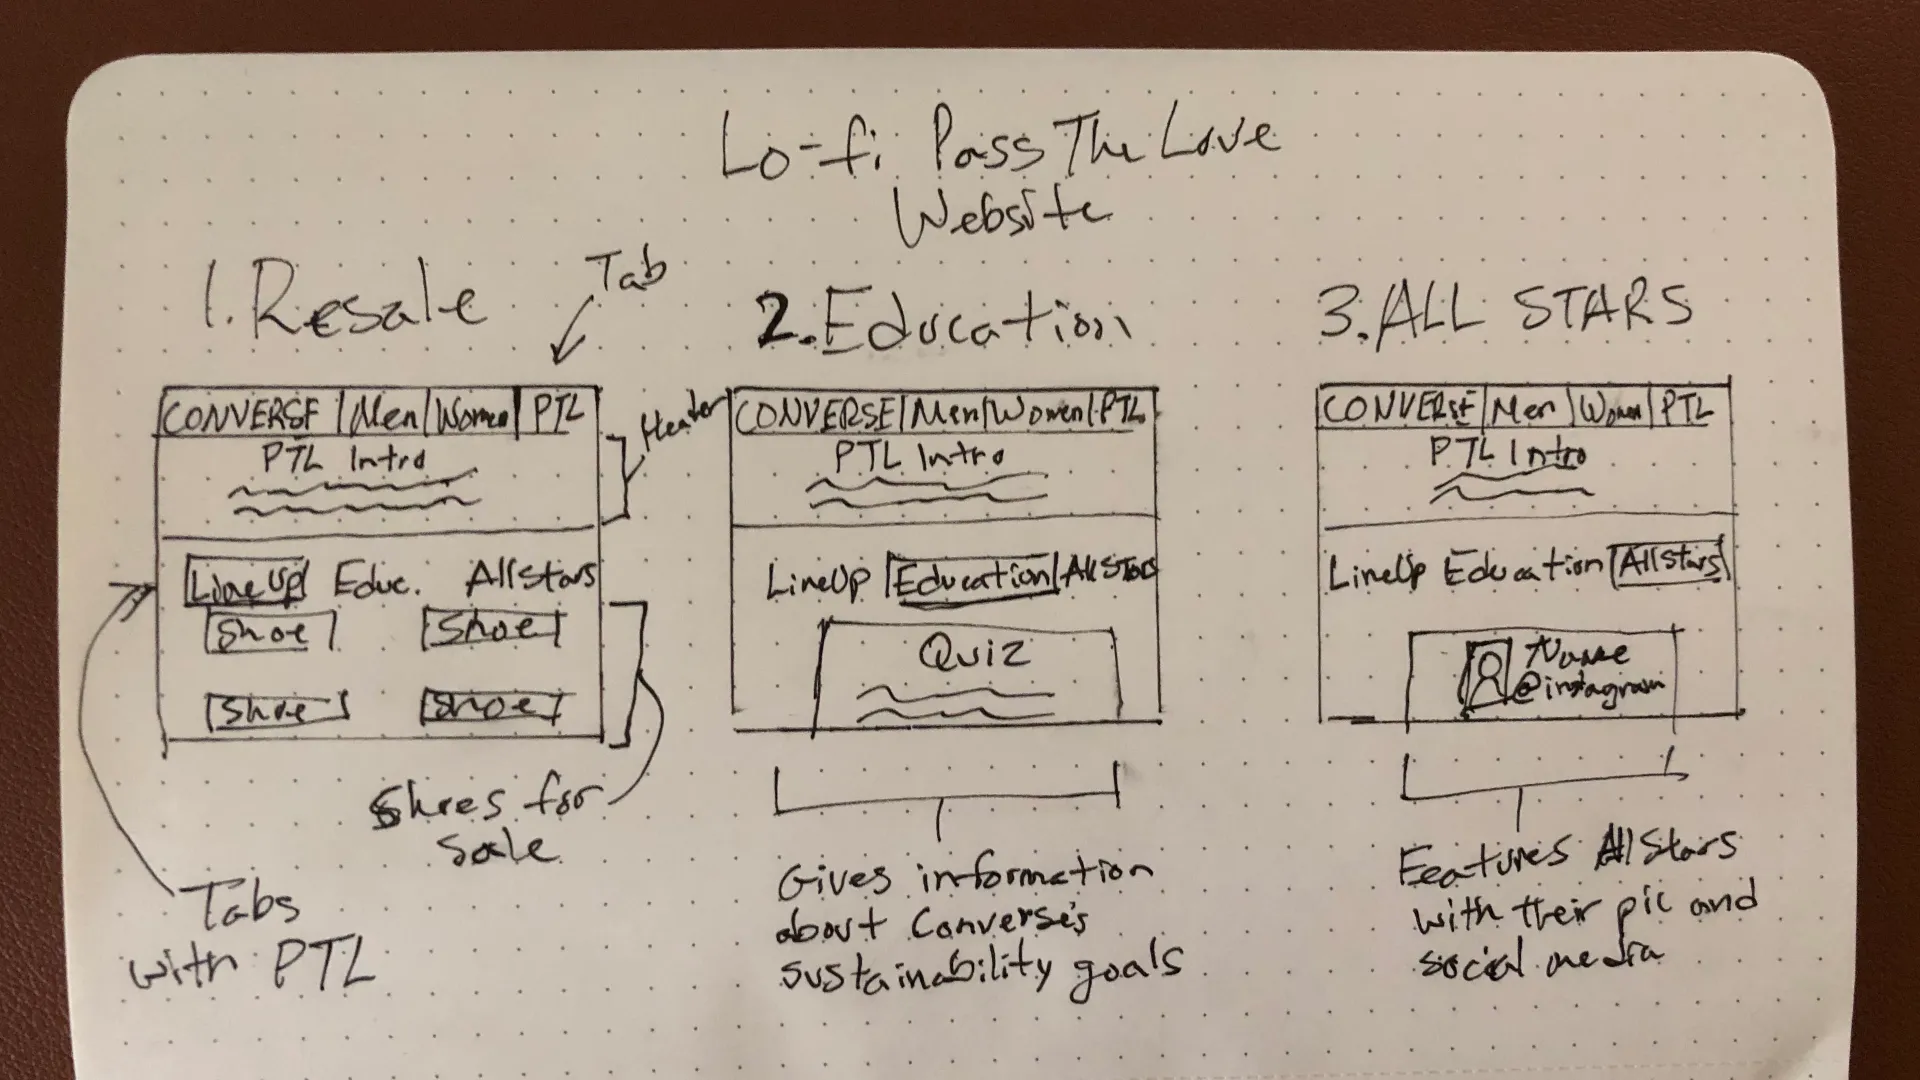 Lo-fi Pass The Love
Website
1. Resale
Tab
CONVERSE | Men | Women | PTL
Header
PTL Intro
LineUp Educ. Allstars
Shoe Shoe
Shoe Shoe
Shoes for
Sale
Tabs
with PTL
2. Education
CONVERSE | Men | Women | PTL
PTL Intro
LineUp Education AllStars
Quiz
Gives information
about Converse's
sustainability goals
3. ALL STARS
CONVERSE | Men | Women | PTL
PTL Intro
LineUp Education Allstars
Name
@instagram
Features AllStars
with their pic and
social media